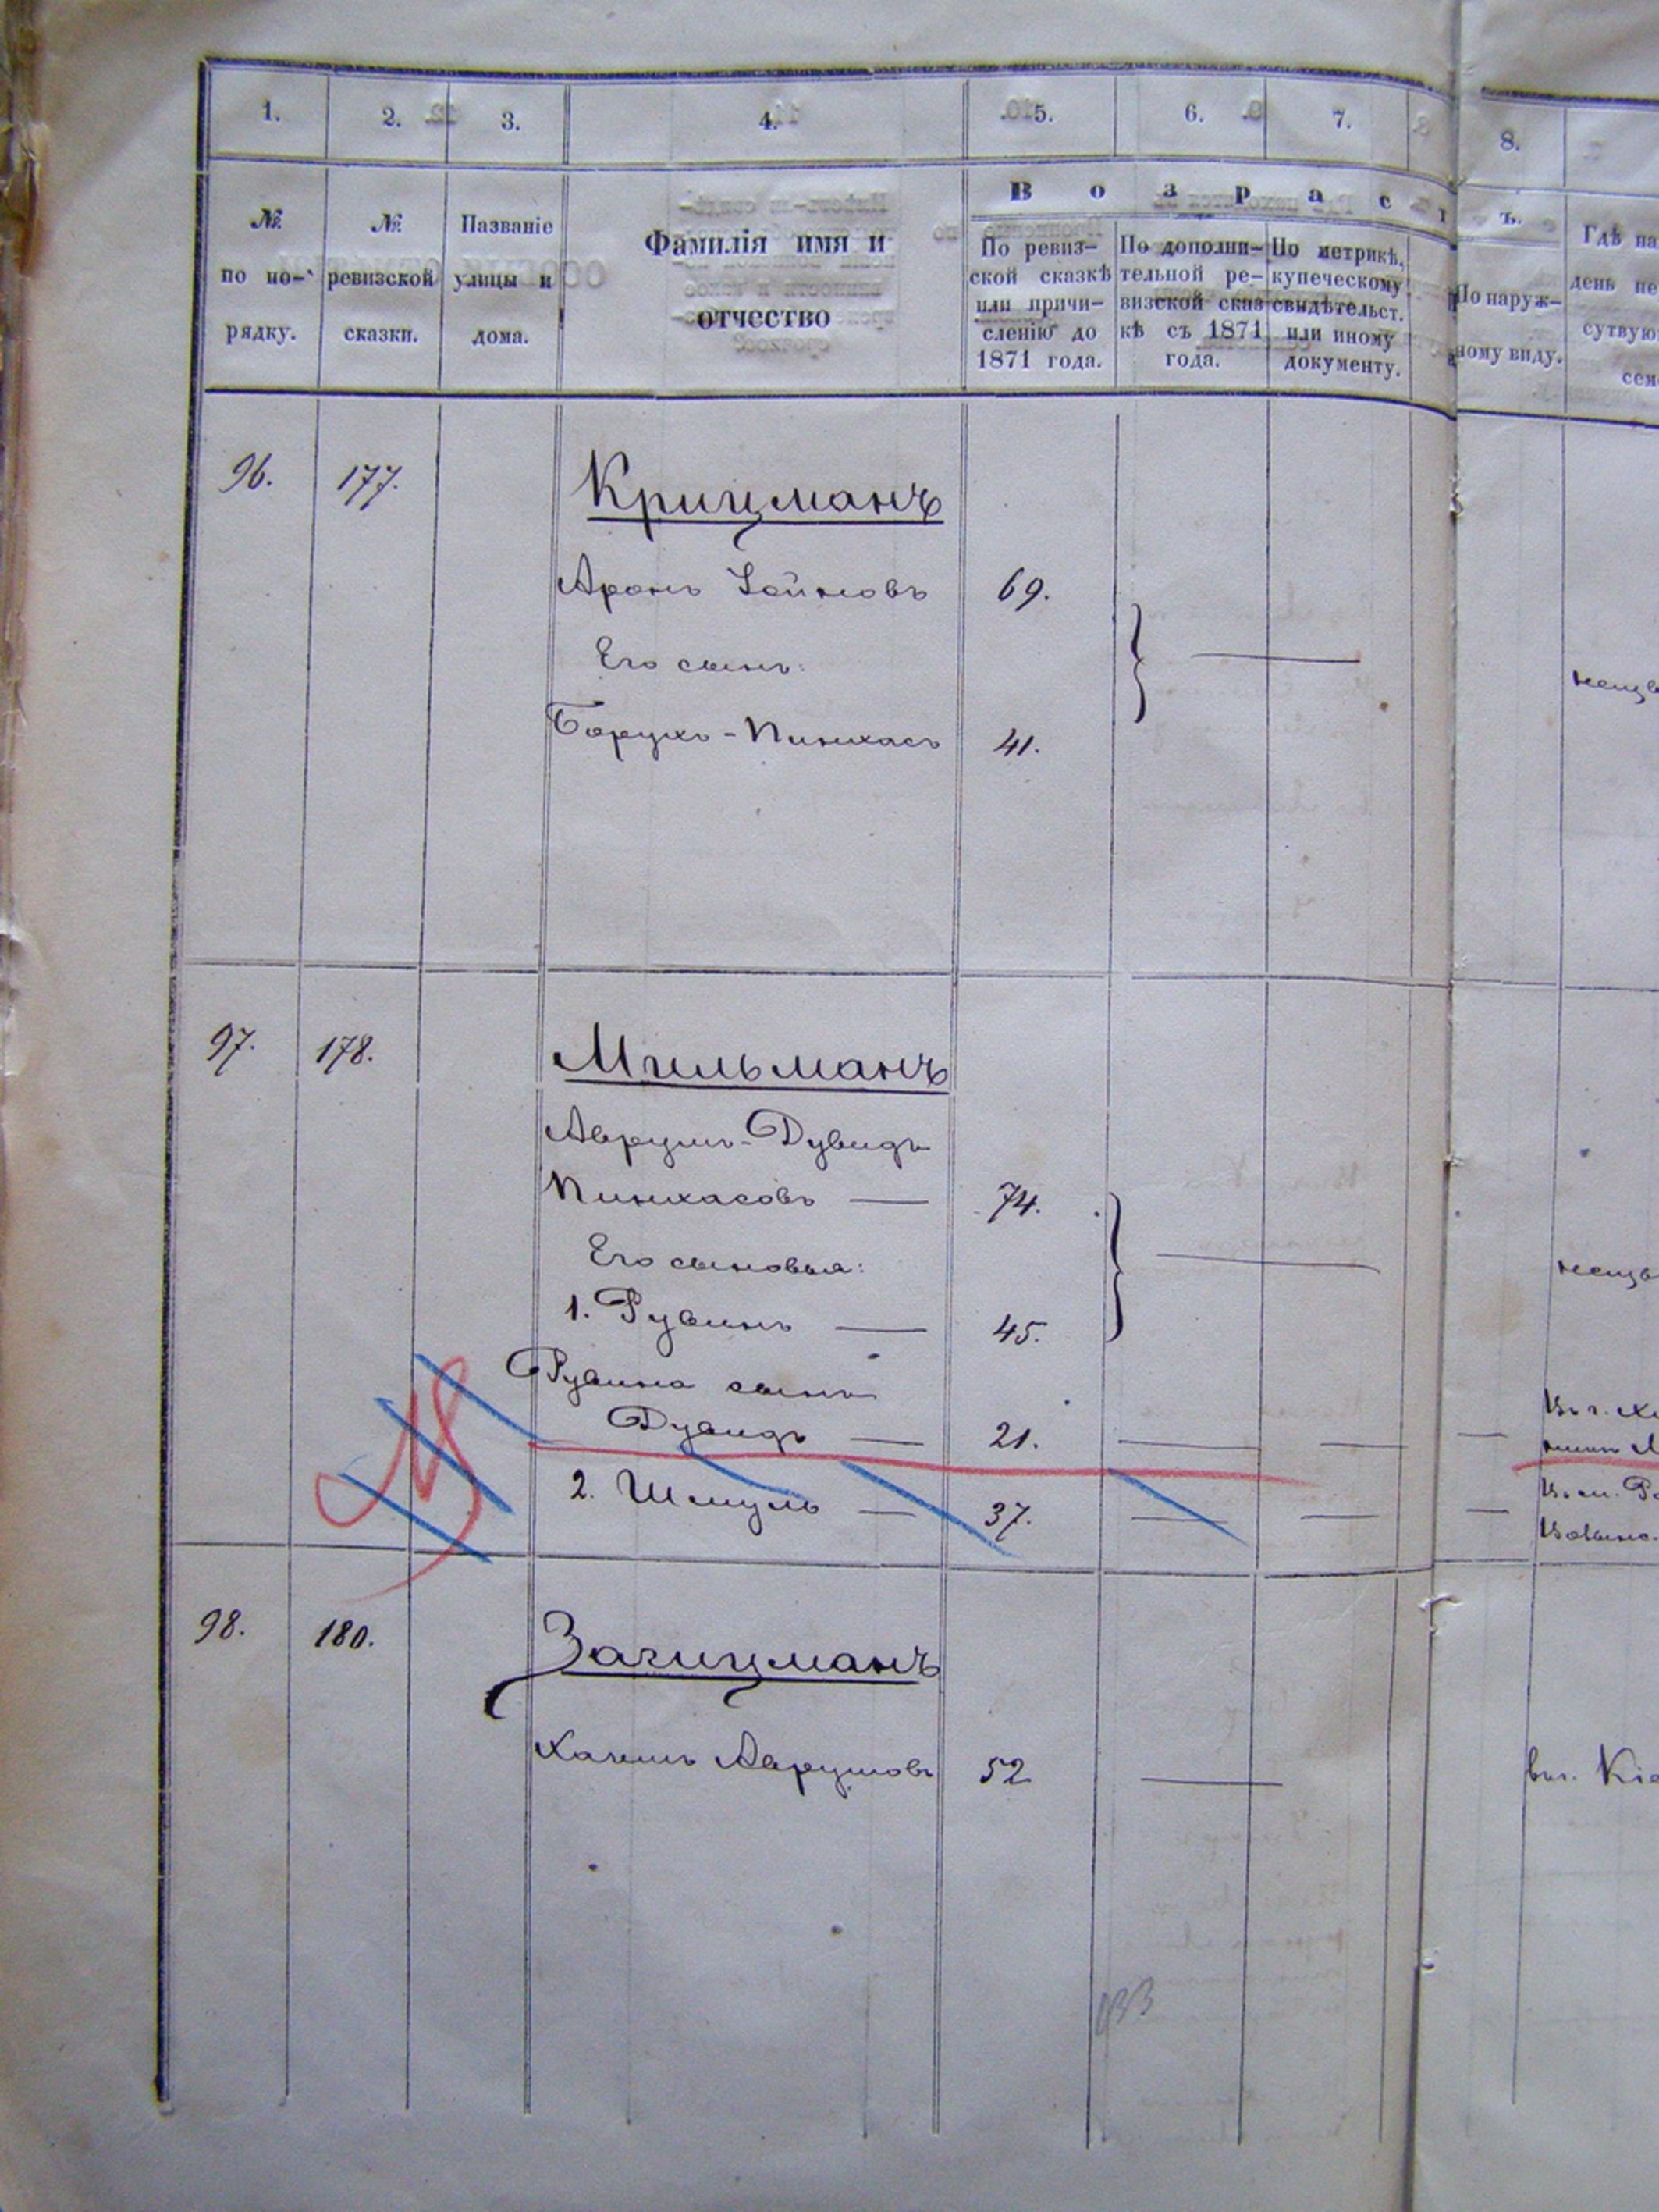 1. 2. 3. 4. 5. 6. 7. 8.
В о з р а с т ъ.
№ по по-рядку.
№ ревизской сказки.
Названіе улицы и дома.
Фамилія имя и отчество
По ревиз-
ской сказкѣ
или причи-
сленію до
1871 года.
По дополни-
тельной ре-
визской сказ
кѣ съ 1871
года.
По метрикѣ,
купеческому
свидѣтельст.
или иному
документу.
По наруж-
ному виду.
Гдѣ на
день пе
сутвую
сем
96. 177. Крицманъ
Аронъ 69.
Его сынъ:
Борухъ-Пинхасъ 41.
97. 178. Мильманъ
Аврумъ-Дувидъ
Пинхасовъ — 74.
Его сыновья:
1. Рувинъ — 45.
Рувина сынъ
Дувидъ — 21.
2. Шмуль — 37.
98. 180. Загицманъ
Хаимъ Аврумовъ 52
133